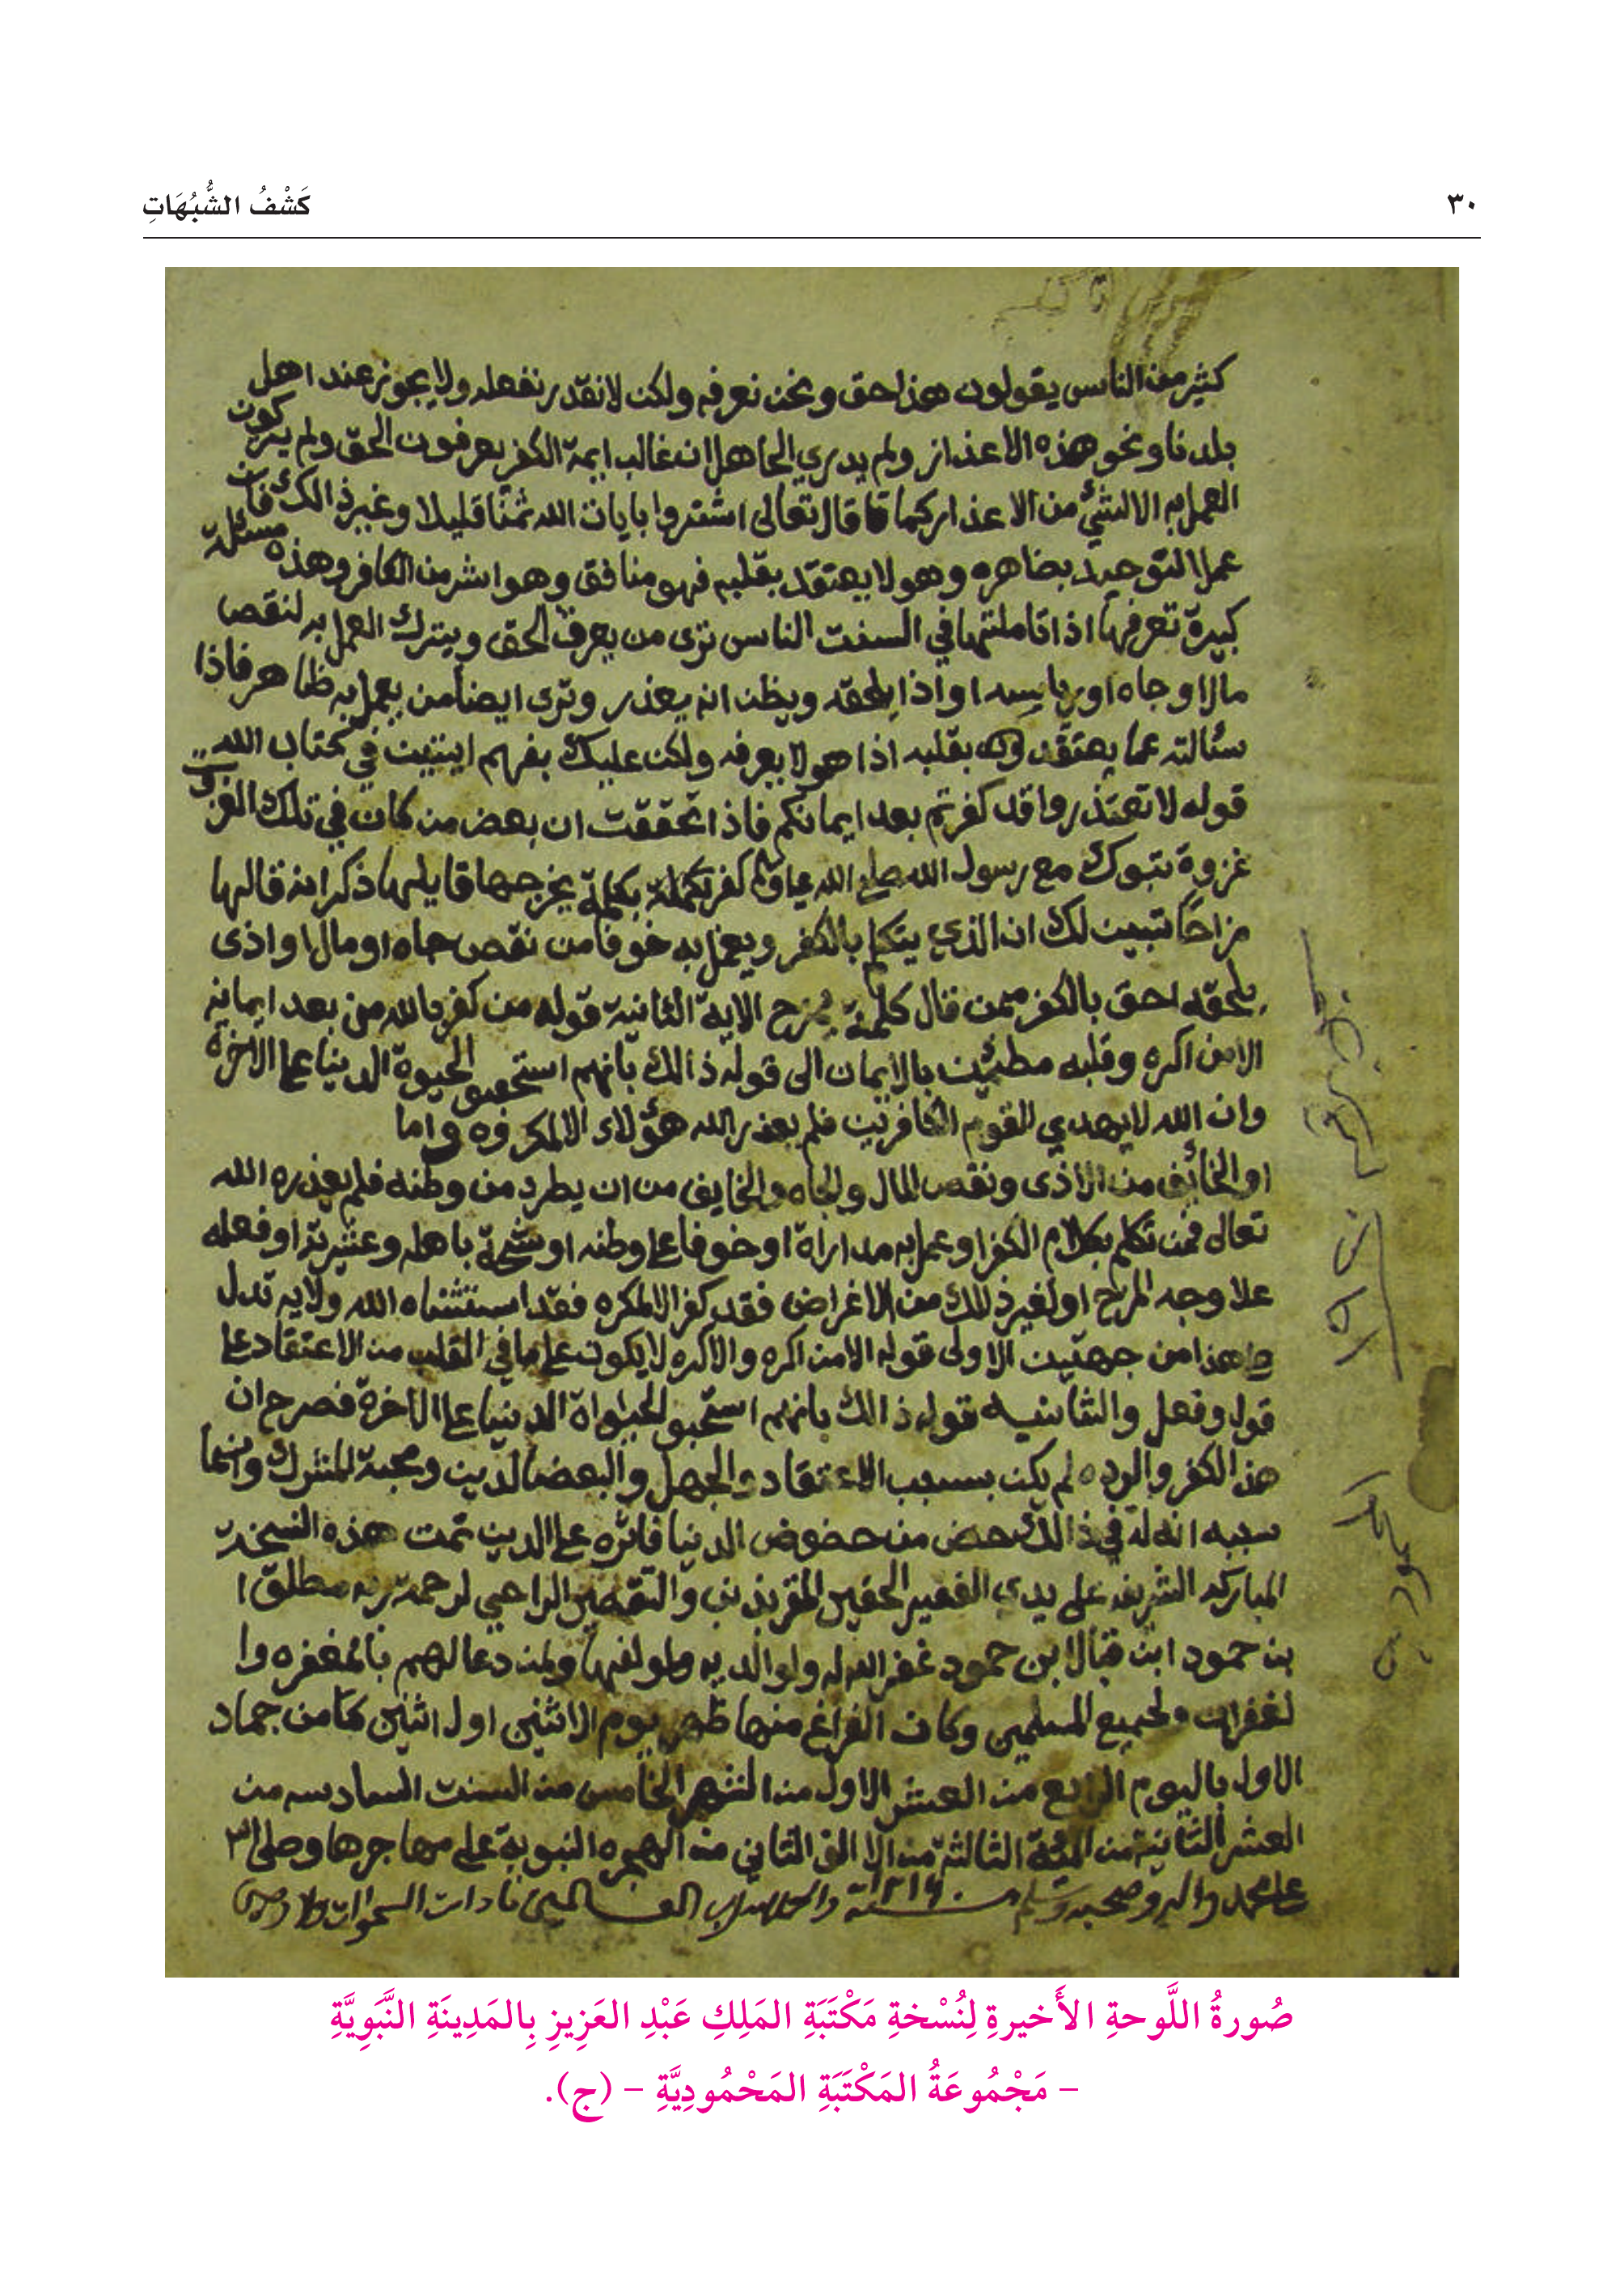 ٣٠
كَشْفُ الشُّبُهَاتِ
كثير من الناس يقولون هذا حق ونحن نعرفه ولكن لانقدر نفعله ولا يجوز عند اهل
بلدنا ونحو هذه الاعذار ولم يدري الجاهل ان غالب ايمة الكفر يعرفون الحق ولم يتركون
العمل به الا لشئ من الاعذار كما قال تعالى اشتروا بايات الله ثمنا قليلا وغير ذالك فان
عمل التوحيد بضاهره وهو لا يعتقد بقلبه فهو منافق وهو اشر من الكافر وهذه مسئلة
كبيرة تعرفها اذا تاملتها في السنت الناس ترى من يعرف الحق ويترك العمل به لنقص
مالا او جاه او رياسه او اذا يلحقه ويظن انه يعذر وترى ايضا من يعمل به ظاهر فاذا
سئالته عما يعتقد بقلبه اذا هو لا يعرفه ولكن عليك بفهم ايتيت في كتاب الله
قوله لا تعتذروا قد كفرتم بعد ايمانكم فاذا تحققت ان بعض من كان في تلك الغز
غزوة تبوك مع رسول الله صلى الله كفر بكلمة يخرجها ذكر انه قالها
مزاحا تبين لك ان الذي يتكلم بالكفر ويعمل به خوفا من نقص جاه او مال او اذى
يلحقه احق بالكفر ممن قال كلمة يمزح الاية الثانية قوله من كفر بالله من بعد ايمانه
الا من اكره وقلبه مطمئن بالايمان الى قوله ذالك بانهم الحيوة الدنيا على الاخرة
وان الله لا يهدي القوم الكافرين فلم يعذر الله هؤلاء الا المكروه واما
او الخائف من الاذى ونقص المال والجاه والخايف من ان يطرد من وطنه فلم يعذره الله
تعالى فمن تكلم بكلام الكفر او عمل به مداراة او خوفا على وطنه او باهله وعشيرته او فعله
علا وجه المزح او لغير ذلك من الاغراض فقد كفر الا المكره فقد استثناه الله ولايه تدل
هذا من جهتين الاولى قوله الا من اكره والاكره لا يكون على ما في القلب من الاعتقاد على
قول وفعل والثانيه قوله ذالك بانهم استحبو الحيواة الدنيا على الاخرة فصرح ان
هذ الكفر والرده لم يكن بسبب الاعتقاد والجهل والبعض الدين ومحبة المشرك وانما
سببه انه له في ذالك حض من حضوض الدنيا فاثره على الدين تمت هذه النسخه
المباركه الشريفه على يدي الفقير الحقير المقر بذنب والتقصير الراجي لرحمة ربه مطلق ا
بن حمود ابن ابن حمود غفر الله له ولوالديه ولمن دعا لهم بالمغفره وا
لغفران ولجميع المسلمين وكان الفراغ منها ظهر يوم الاثنين اول اثنين من جماد
الاول باليوم الرابع من العشر الاول من الشهر الخامس من السنت السادسه من
العشر الثانية من المئة الثالثة من الالف الثاني من الهجره النبوية على مهاجرها وصلى
على محمد واله وصحبه وسلم سنة ١٢١٦
صُورةُ اللَّوحةِ الأَخيرةِ لِنُسْخةِ مَكْتَبَةِ المَلِكِ عَبْدِ العَزِيزِ بِالمَدِينَةِ النَّبَوِيَّةِ
– مَجْمُوعَةُ المَكْتَبَةِ المَحْمُودِيَّةِ – (ج).